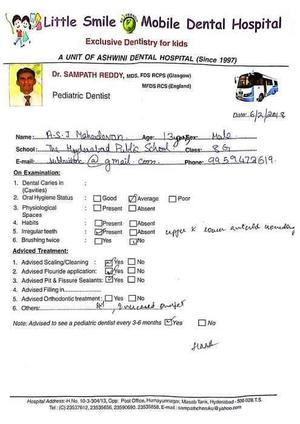 Little Smile Mobile Dental Hospital
Exclusive Dentistry for kids
A UNIT OF ASHWINI DENTAL HOSPITAL (Since 1997)
Dr. SAMPATH REDDY, MDS, FDS RCPS (Glasgow)
MFDS RCS (England)
Pediatric Dentist
Date: 6/2/2018
Name: A.S.J Mahadevan Age: 13 years Male
School: The Hyderabad Public School Class: 8 G
E-mail: @gmail.com Phone: 9959472619
On Examination:
1. Dental Caries in (Cavities) :
2. Oral Hygiene Status : Good Average Poor
3. Physiological Spaces : Present Absent
4. Habits : Present Absent
5. Irregular teeth : Present Absent upper & lower anterior crowding
6. Brushing twice : Yes No
Adviced Treatment:
1. Advised Scaling/Cleaning : Yes No
2. Advised Flouride application: Yes No
3. Advised Pit & Fissure Sealants: Yes No
4. Advised Filling
5. Advised Orthodontic treatment: Yes No
6. Others: Increased overjet
Note: Advised to see a pediatric dentist every 3-6 months Yes No
Hospital Address:-H.No. 10-3-304/13, Opp: Post Office, Humayunnagar, Masab Tank, Hyderabad - 500 028.T.S.
Tel: (C) 23537612, 23535656, 23590690. 23535658, E-mail: sampathcheruku@yahoo.com